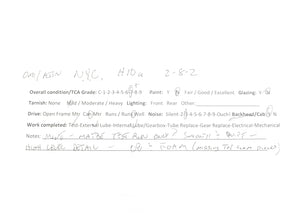 N.Y.C. H10a 2-8-2
Overall condition/TCA Grade: C-1-2-3-4-5-6-7-8-9 Paint: Y N Fair / Good / Excellent Glazing:
Tarnish: None Mild / Moderate / Heavy Lighting: Front Rear Other
Drive: Open Frame Mtr Can Mtr Runs / Runs Well Noise: Silent 2-3-4-5-6-7-8-9 Ouch! Backhead/Cab
Work completed: Test External Lube-Internal Lube/Gearbox-Tube Replace-Gear Replace-Electrical-Mechanical
Notes: MINT - MAYBE TEST RUN ONLY? SMOOTH & QUIET -
HIGH LEVEL DETAIL -